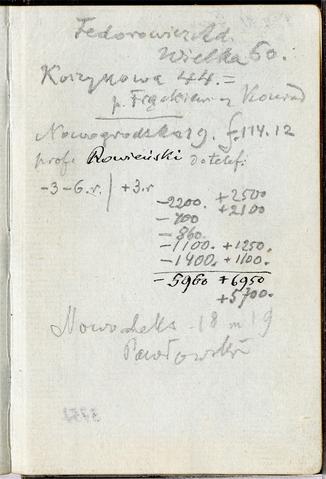 Fedorowicz Ad.
Wielka 60.
Koszykowa 44. =
p. Frąckiewicz Konrad
Nowogrodzka 19. f. 114.12
prof. Rowieński do telef.
-3-6.r. | +3.r
-2200. +2500
-700 +2100
-860.
-1100. +1250.
-1400. +1100.
-5960 +6950
+5700.
18 m 19
Pawłowski